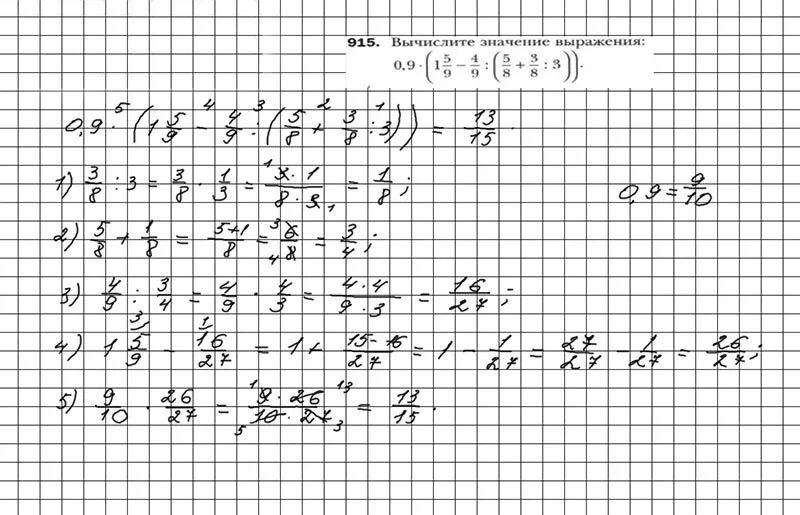 915. Вычислите значение выражения:
0,9 · (1 5/9 − 4/9 : (5/8 + 3/8 : 3)).
5 4 3 2 1
0,9 · (1 5/9 − 4/9 : (5/8 + 3/8 : 3)) = 13/15.
1) 3/8 : 3 = 3/8 · 1/3 = 3 · 1/8 · 3 = 1/8; 0,9 = 9/10
2) 5/8 + 1/8 = 5+1/8 = 6/8 = 3/4;
3) 4/9 : 3/4 = 4/9 · 4/3 = 4 · 4/9 · 3 = 16/27;
4) 1 5/9 − 16/27 = 1 + 15 − 16/27 = 1 − 1/27 = 27/27 − 1/27 = 26/27;
5) 9/10 · 26/27 = 9 · 26/10 · 27 = 13/15.